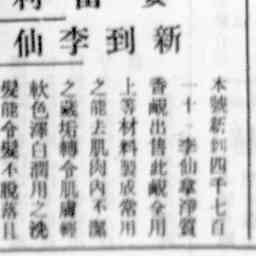 新到李仙
本號新到四千七百
一十李仙拿淨質
香鹼出售此鹼全用
上等材料製成常用
之能去肌肉內不潔
之歲垢轉令肌膚輕
軟色渾白潤用之洗
髮能令髮不脫落且